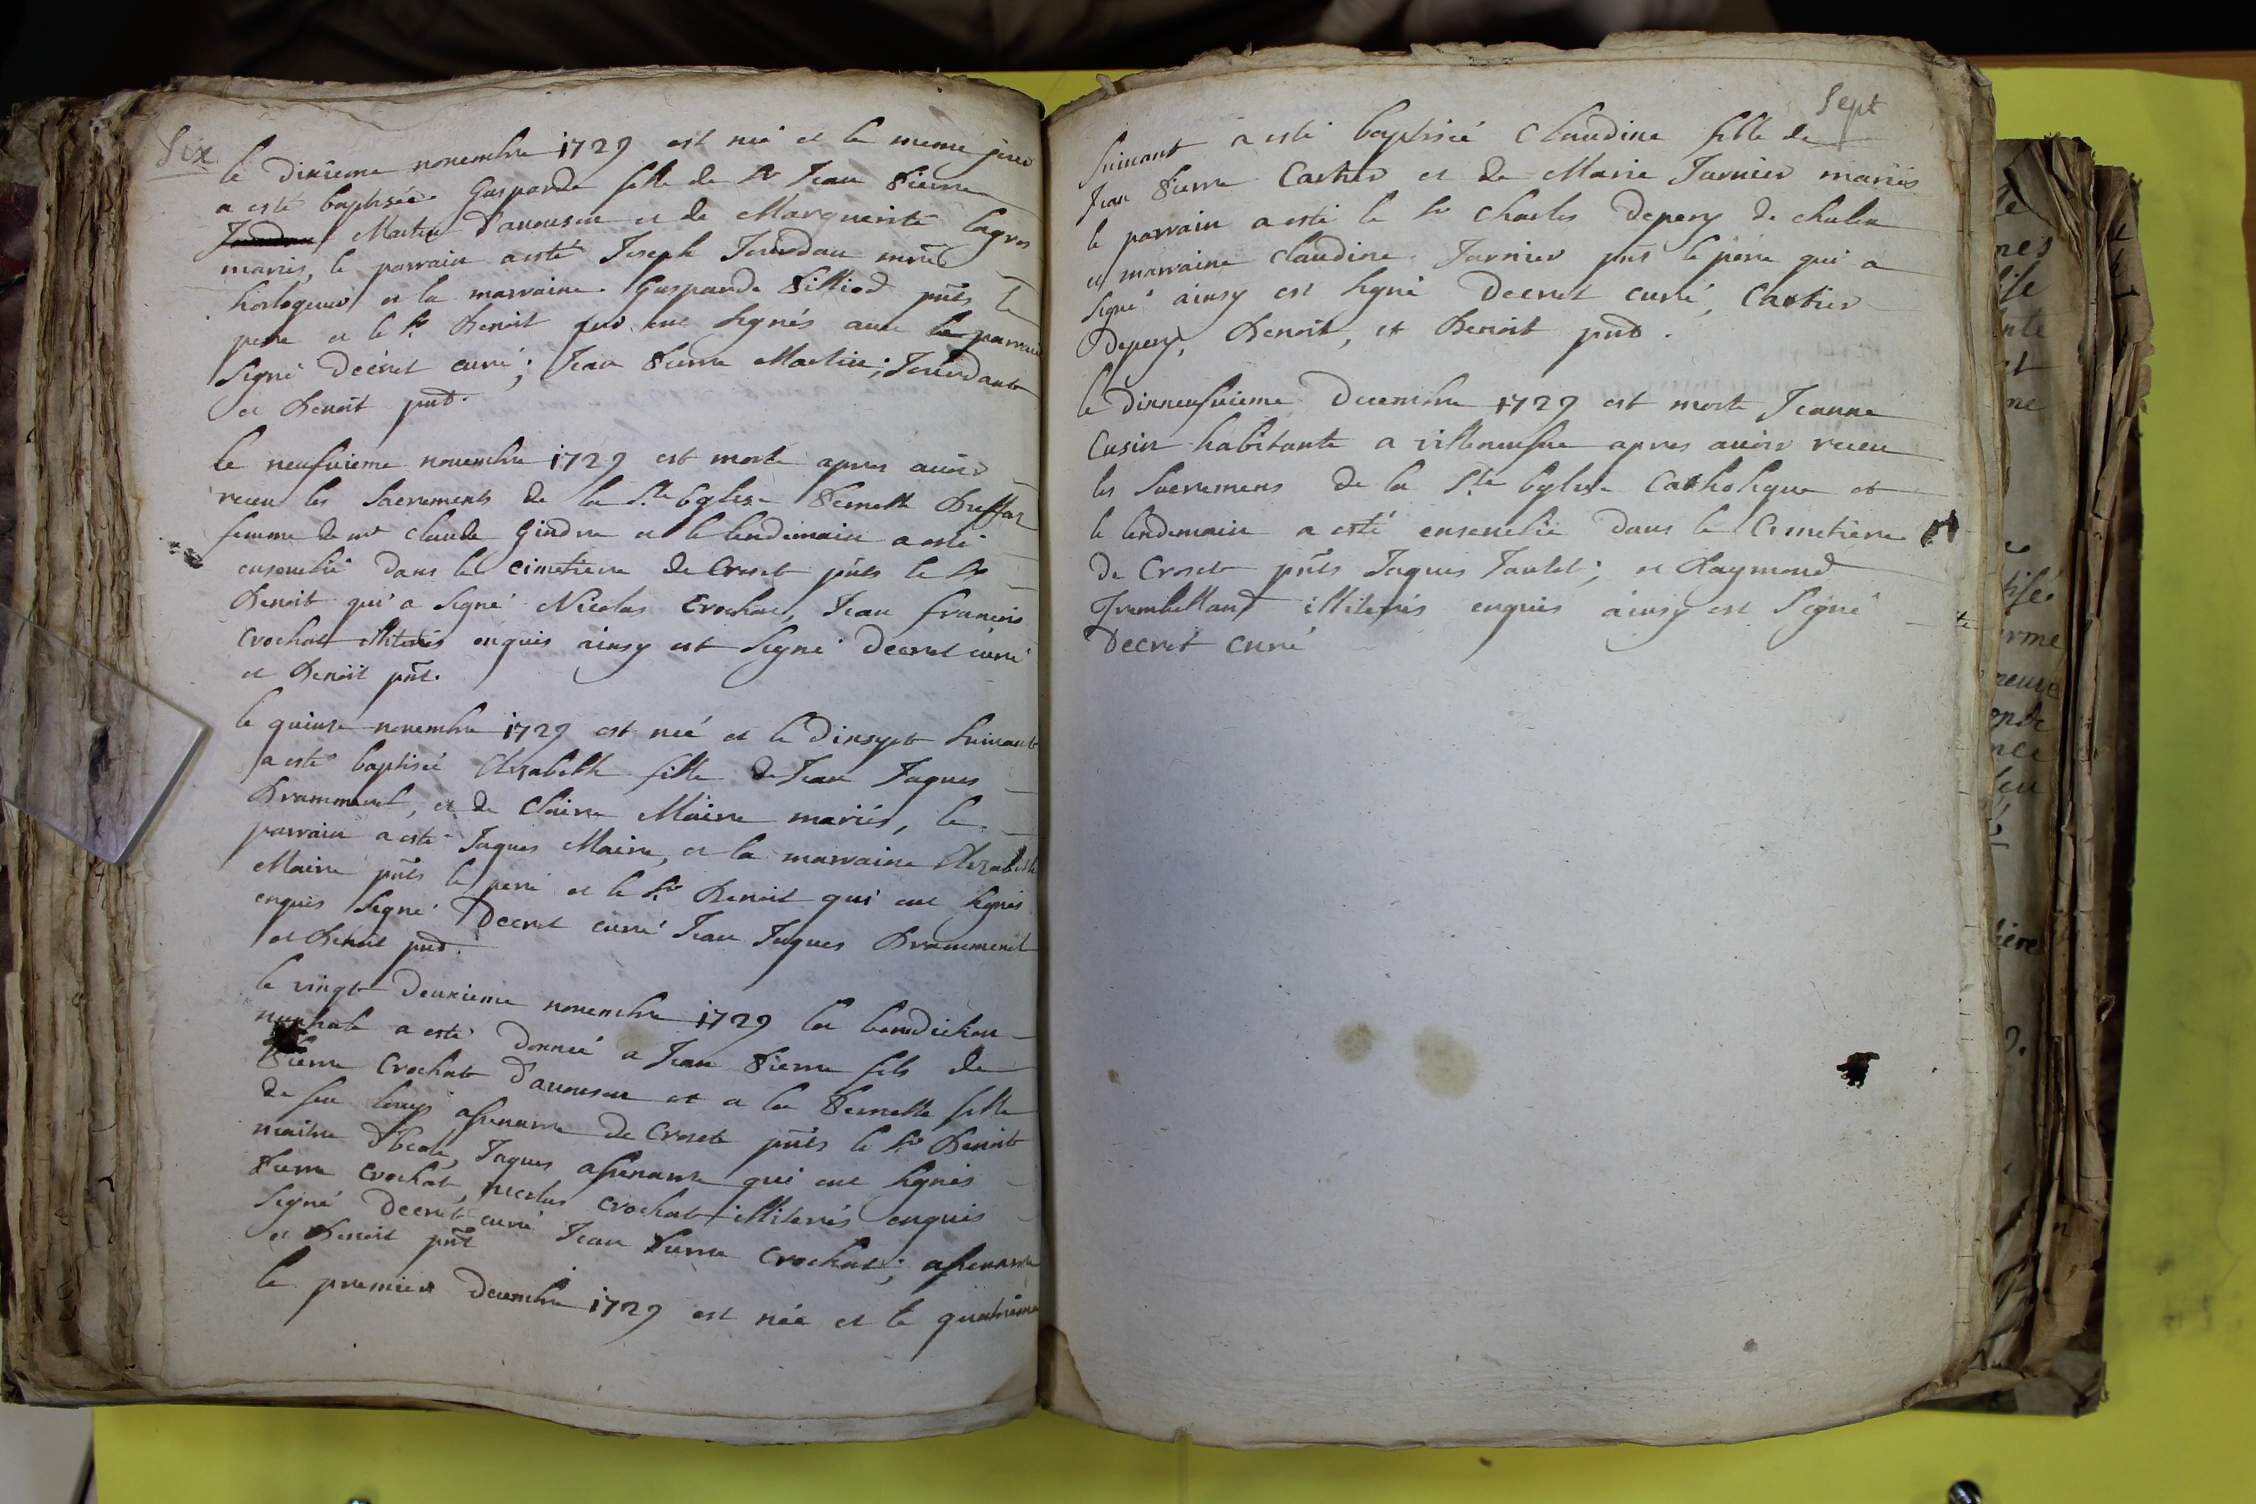 Six
le dixieme novembre 1729 est née et le meme jour
a esté baptisée Gasparde fille de Sr Jean Pierre
Martin d'avouson et de Marguerite Lagros
mariés, le parrain a esté Joseph Jourdan mtre
horlogeur et la marraine Gasparde Pilliod pnts le
pere et le Sr Benoit qui ont signés avec le parrain
signé Decret curé; Jean Pierre Martin; Jourdant
et Benoit pnt.
le neufvieme novembre 1729 est morte apres avoir
receu les sacrements de la Ste Eglise Pernette Duffor
femme de mr claude Gindre et le lendemain a esté
ensevelie dans le cimetiere de Croset pnts le Sr
Benoit qui a signé Nicolas Crochat, Jean francois
Crochat illiterés enquis ainsy est signé Decret curé
et Benoit pnt.
le quinze novembre 1729 est née et le dixsept suivant
a esté baptisée Elisabette fille de Jean Jaques
et de Claire Maire mariés, le
parrain a esté Jaques Maire, et la marraine Elizabette
Maire pnts le pere et le Sr Benoit qui ont signés
enquis signé Decret curé Jean Jaques
et Benoit pnt.
le vingt deuxieme novembre 1729 la benediction
nuptiale a esté donnée a Jean Pierre fils de
Pierre Crochat d'avouson et a la Pernette fille
de feu de Croset pnts le Sr Benoit
maitre d'Ecole, Jaques qui ont signés
Pierre Crochat, nicolas Crochat illiterés enquis
signé Decret curé Jean Pierre Crochat;
et Benoit pnt
le premier Decembre 1729 est née et le quatrieme
Sept
suivant a esté baptisée Claudine fille de
Jean Pierre Cartier et de Marie Tarnier mariés
le parrain a esté le Sr Charles Depery de chalex
et marraine Claudine Tarnier pnts le pere qui a
signé ainsy est signé Decret curé, Cartier
Depery, Benoit, et Benoit pnt.
le dixneufvieme Decembre 1729 est morte Jeanne
Cusin habitante a villeneufve apres avoir receu
les Sacremens de la Ste Eglise Catholique et
le lendemain a esté ensevelie dans le Cimetiere
de Croset pnts Jaques et Raymond
illiterés enquis ainsy est signé
Decret curé